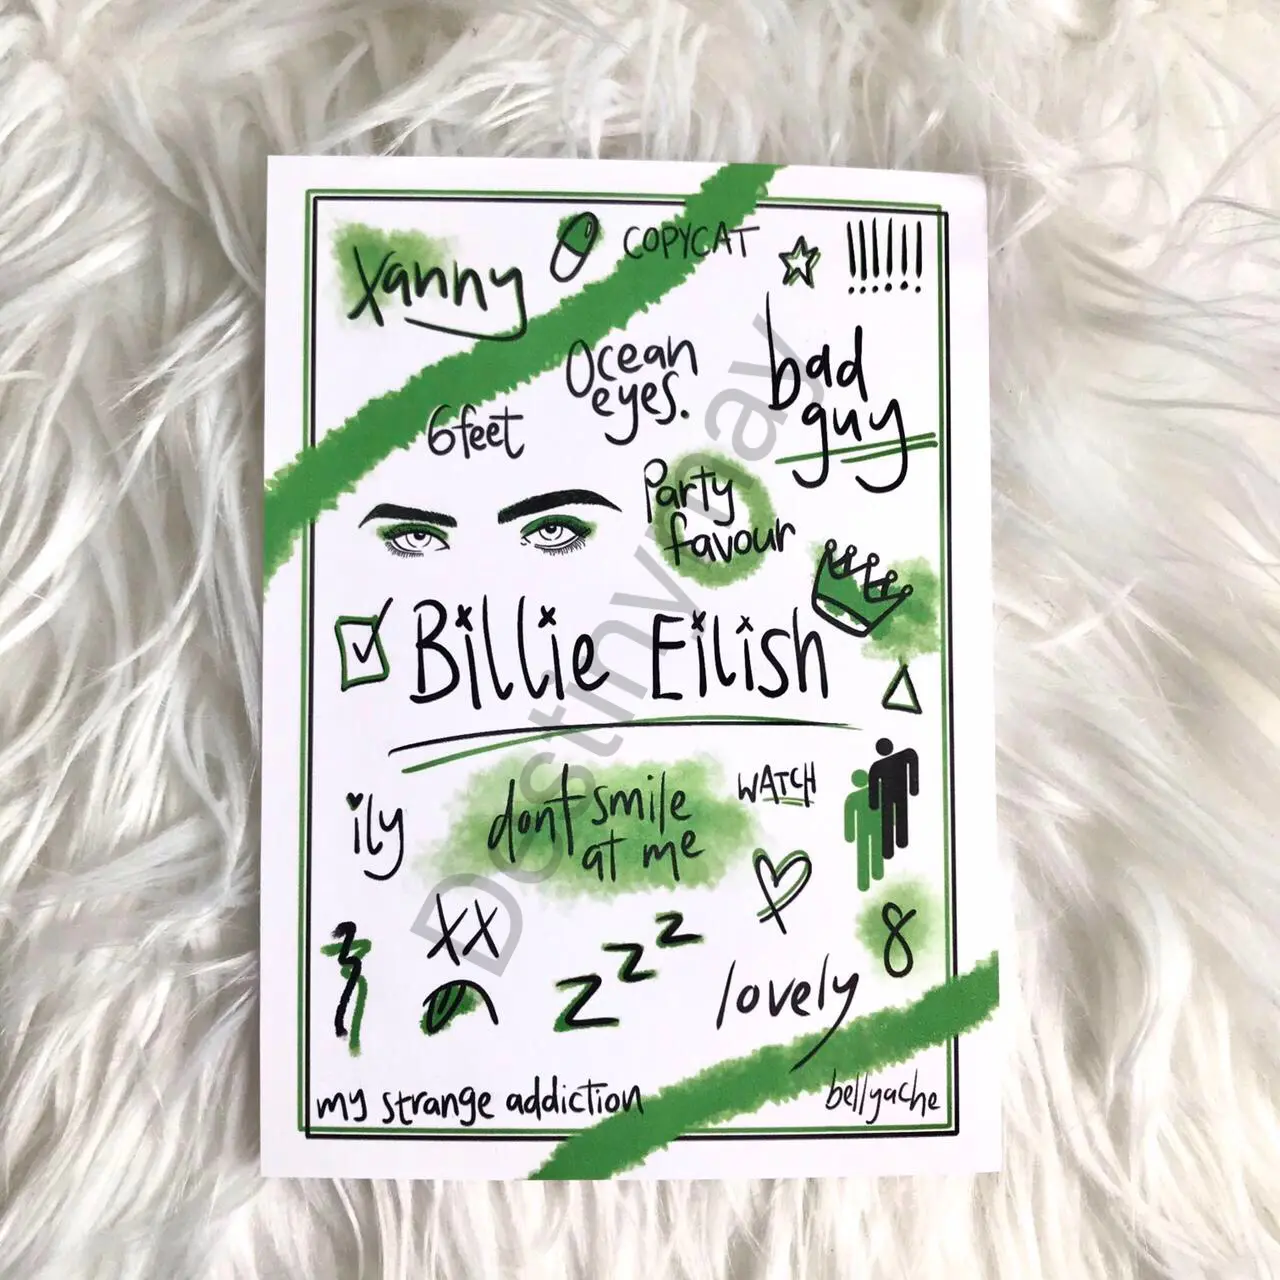 xanny
COPYCAT
!!!!!!
Ocean
eyes.
bad
guy
6feet
Party
favour
Billie Eilish
ily
dont smile
at me
WATCH
xx
8
zzz
lovely
my strange addiction
bellyache
Destinymay